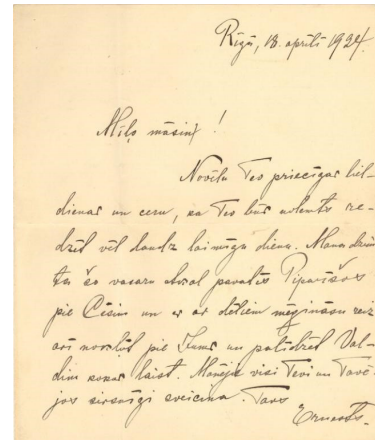 Rīgā, 18. aprīlī 1924.
Mīļo māsiņ!
Novēlu Tev priecīgas liel-
dienas un ceru, ka Tev būs nolemts re-
dzēt vēl daudz laimīgu dienu. Manu
ta šo vasaru atkal pavadīs
pie Cēsīm un es ar dēliem mēģināsu reiz
arī nonākt pie Jums un palīdzēt Val-
dim kokus laist. Manējie visi Tevi un Tavē-
jos sirsnīgi sveicina. Tavs
Ernests.